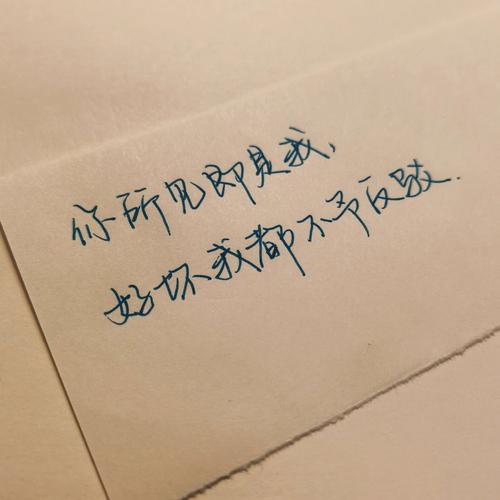 你所见即是我，
好坏我都不予反驳.